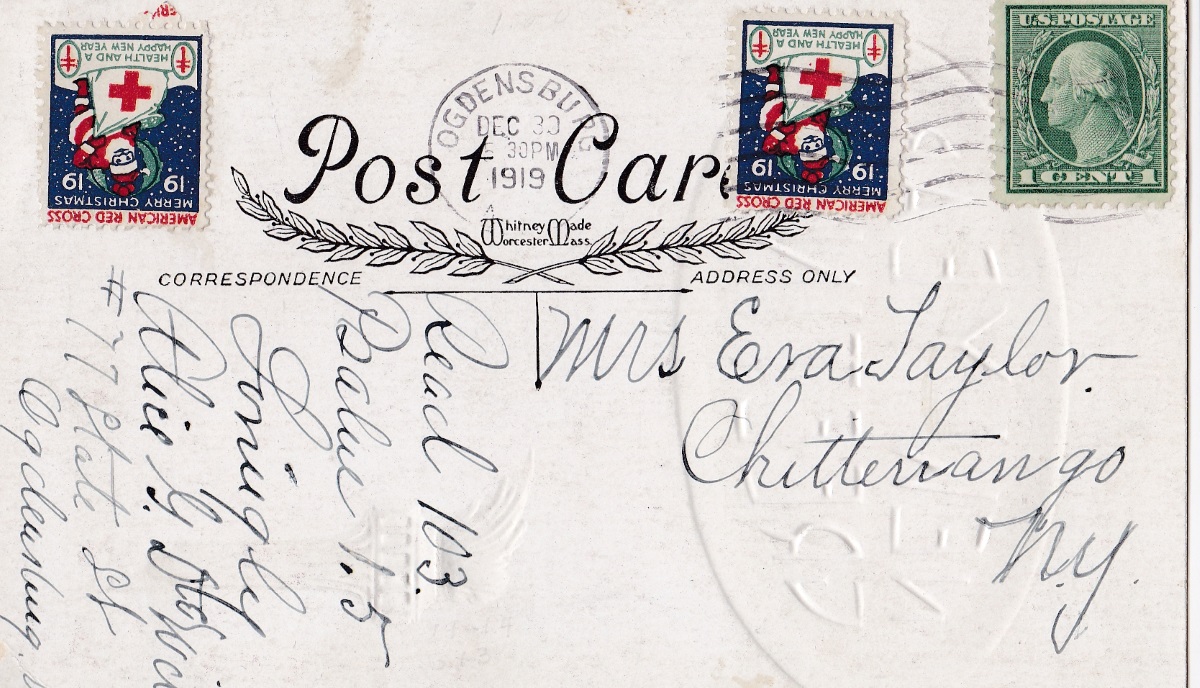 HEALTH AND A
HAPPY NEW YEAR
19 19
MERRY CHRISTMAS
AMERICAN RED CROSS
OGDENSBURG
DEC 30
6 30PM
1919
HEALTH AND A
HAPPY NEW YEAR
19 19
MERRY CHRISTMAS
AMERICAN RED CROSS
U.S. POSTAGE
1 CENT 1
Post Car
Whitney Made
Worcester Mass.
CORRESPONDENCE
ADDRESS ONLY
Mrs Eva Taylor.
Chittenango
N.Y.
Read 103.
Lovingly
Alice G
#77 State St
Ogdensburg.